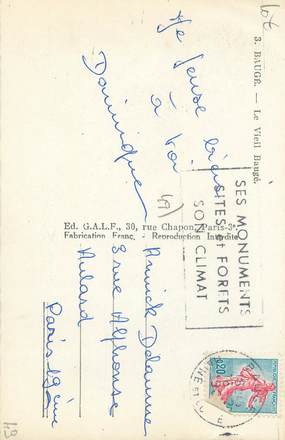 10€
3. BAUGÉ. — Le Vieil Baugé.
Je pense bien
à toi
Dominique
(49)
Ed. G.A.L.F., 30, rue Chapon, Paris-3e
Fabrication Franç. - Reproduction Interdite
SES MONUMENTS
SITES et FORETS
SON CLIMAT
0,20
Annick Delaunay
8 rue Alphonse
Aulard
Paris 19ème